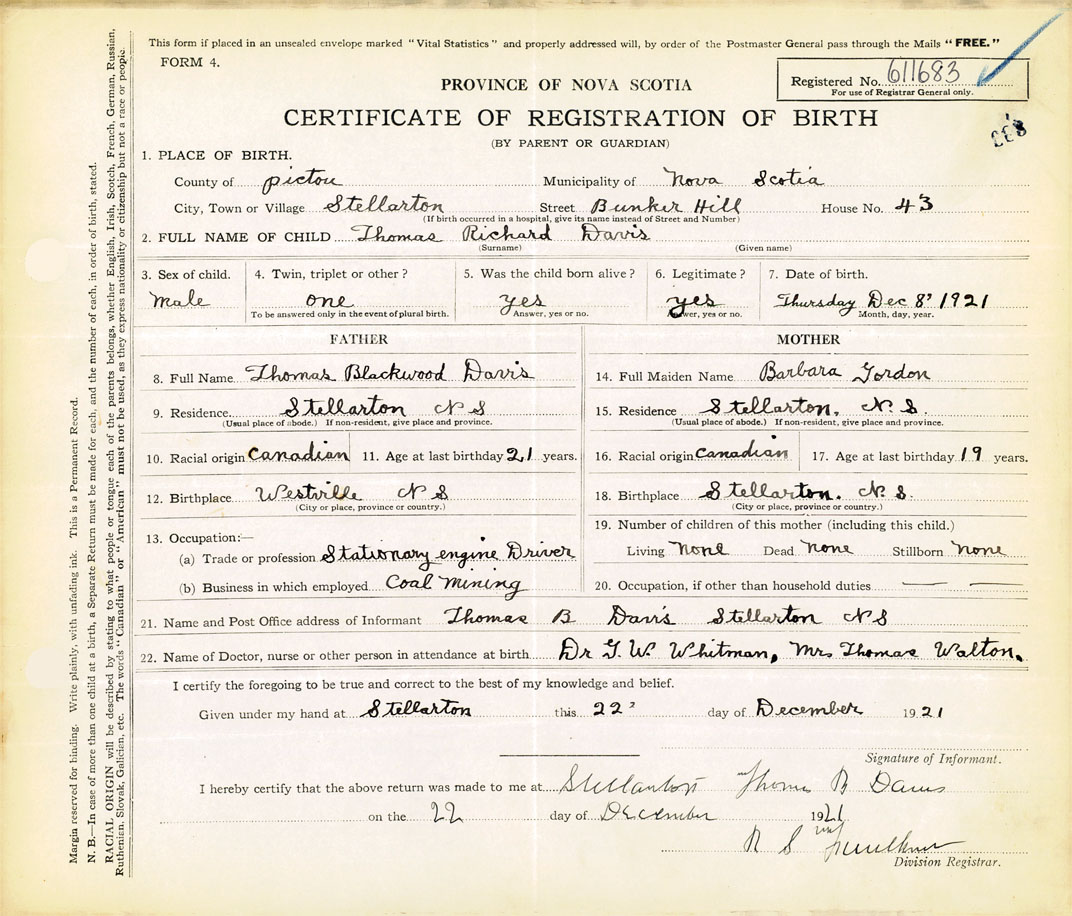 This form if placed in an unsealed envelope marked "Vital Statistics" and properly addressed will, by order of the Postmaster General pass through the Mails "FREE."
FORM 4.
Registered No. 611683
For use of Registrar General only.
PROVINCE OF NOVA SCOTIA
CERTIFICATE OF REGISTRATION OF BIRTH
(BY PARENT OR GUARDIAN)
1. PLACE OF BIRTH.
County of Pictou Municipality of Nova Scotia
City, Town or Village Stellarton Street Bunker Hill House No. 43
(If birth occurred in a hospital, give its name instead of Street and Number)
2. FULL NAME OF CHILD Thomas Richard Davis
(Surname) (Given name)
3. Sex of child. 4. Twin, triplet or other? 5. Was the child born alive? 6. Legitimate? 7. Date of birth.
Male one yes yes Thursday Dec 8' 1921
To be answered only in the event of plural birth. Answer, yes or no. Answer, yes or no. Month, day, year.
FATHER MOTHER
8. Full Name Thomas Blackwood Davis 14. Full Maiden Name Barbara Gordon
9. Residence. Stellarton N S 15. Residence Stellarton, N. S.
(Usual place of abode.) If non-resident, give place and province. (Usual place of abode.) If non-resident, give place and province.
10. Racial origin Canadian 11. Age at last birthday 21 years. 16. Racial origin Canadian 17. Age at last birthday 19 years.
12. Birthplace Westville N S 18. Birthplace Stellarton. N. S.
(City or place, province or country.) (City or place, province or country.)
13. Occupation:— 19. Number of children of this mother (including this child.)
(a) Trade or profession Stationary engine Driver Living none Dead none Stillborn none
(b) Business in which employed Coal Mining 20. Occupation, if other than household duties
21. Name and Post Office address of Informant Thomas B Davis Stellarton N S
22. Name of Doctor, nurse or other person in attendance at birth Dr G. W. Whitman, Mrs Thomas Walton.
I certify the foregoing to be true and correct to the best of my knowledge and belief.
Given under my hand at Stellarton this 22 day of December 1921
Signature of Informant.
I hereby certify that the above return was made to me at Stellarton Thomas B Davis
on the 22 day of December 1921
R S
Division Registrar.
Margin reserved for binding. Write plainly, with unfading ink. This is a Permanent Record.
N. B.—In case of more than one child at a birth, a Separate Return must be made for each, and the number of each, in order of birth, stated.
RACIAL ORIGIN will be described by stating to what people or tongue each of the parents belongs, whether English, Irish, Scotch, French, German, Russian,
Ruthenian, Slovak, Galician, etc. The words "Canadian" or "American" must not be used, as they express nationality or citizenship but not a race or people.